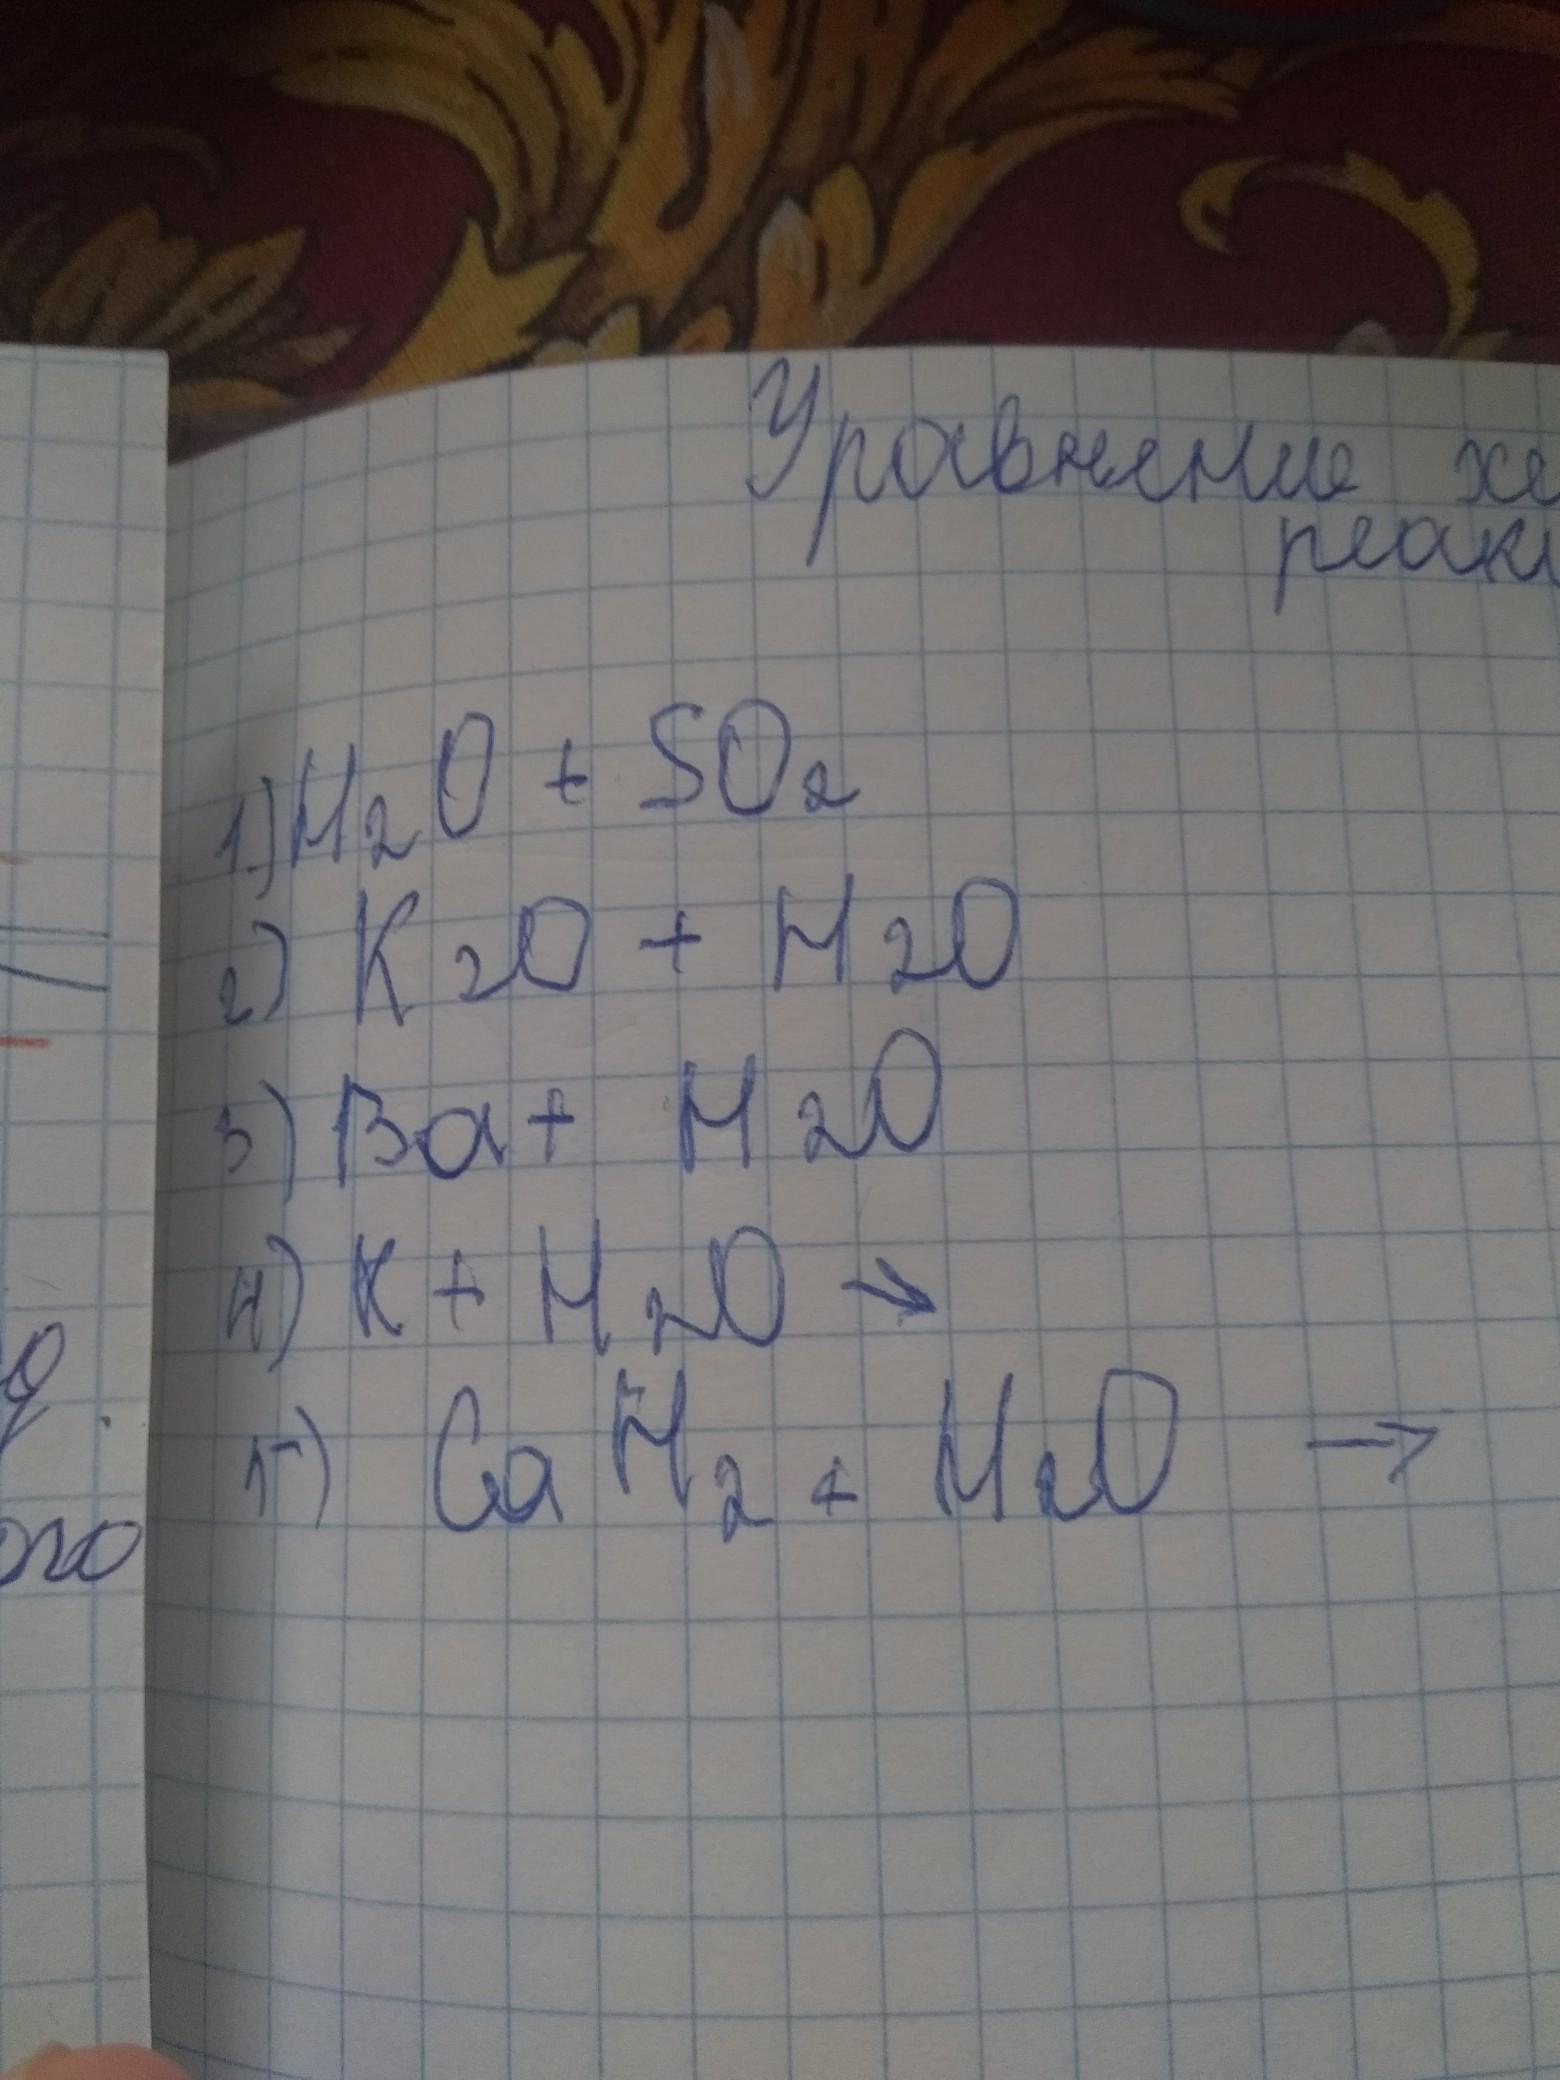 Уравнение хе
реак
1) H₂O + SO₂
2) K₂O + H₂O
3) Ba + H₂O
4) K + H₂O →
5) CaH₂ + H₂O →
ого